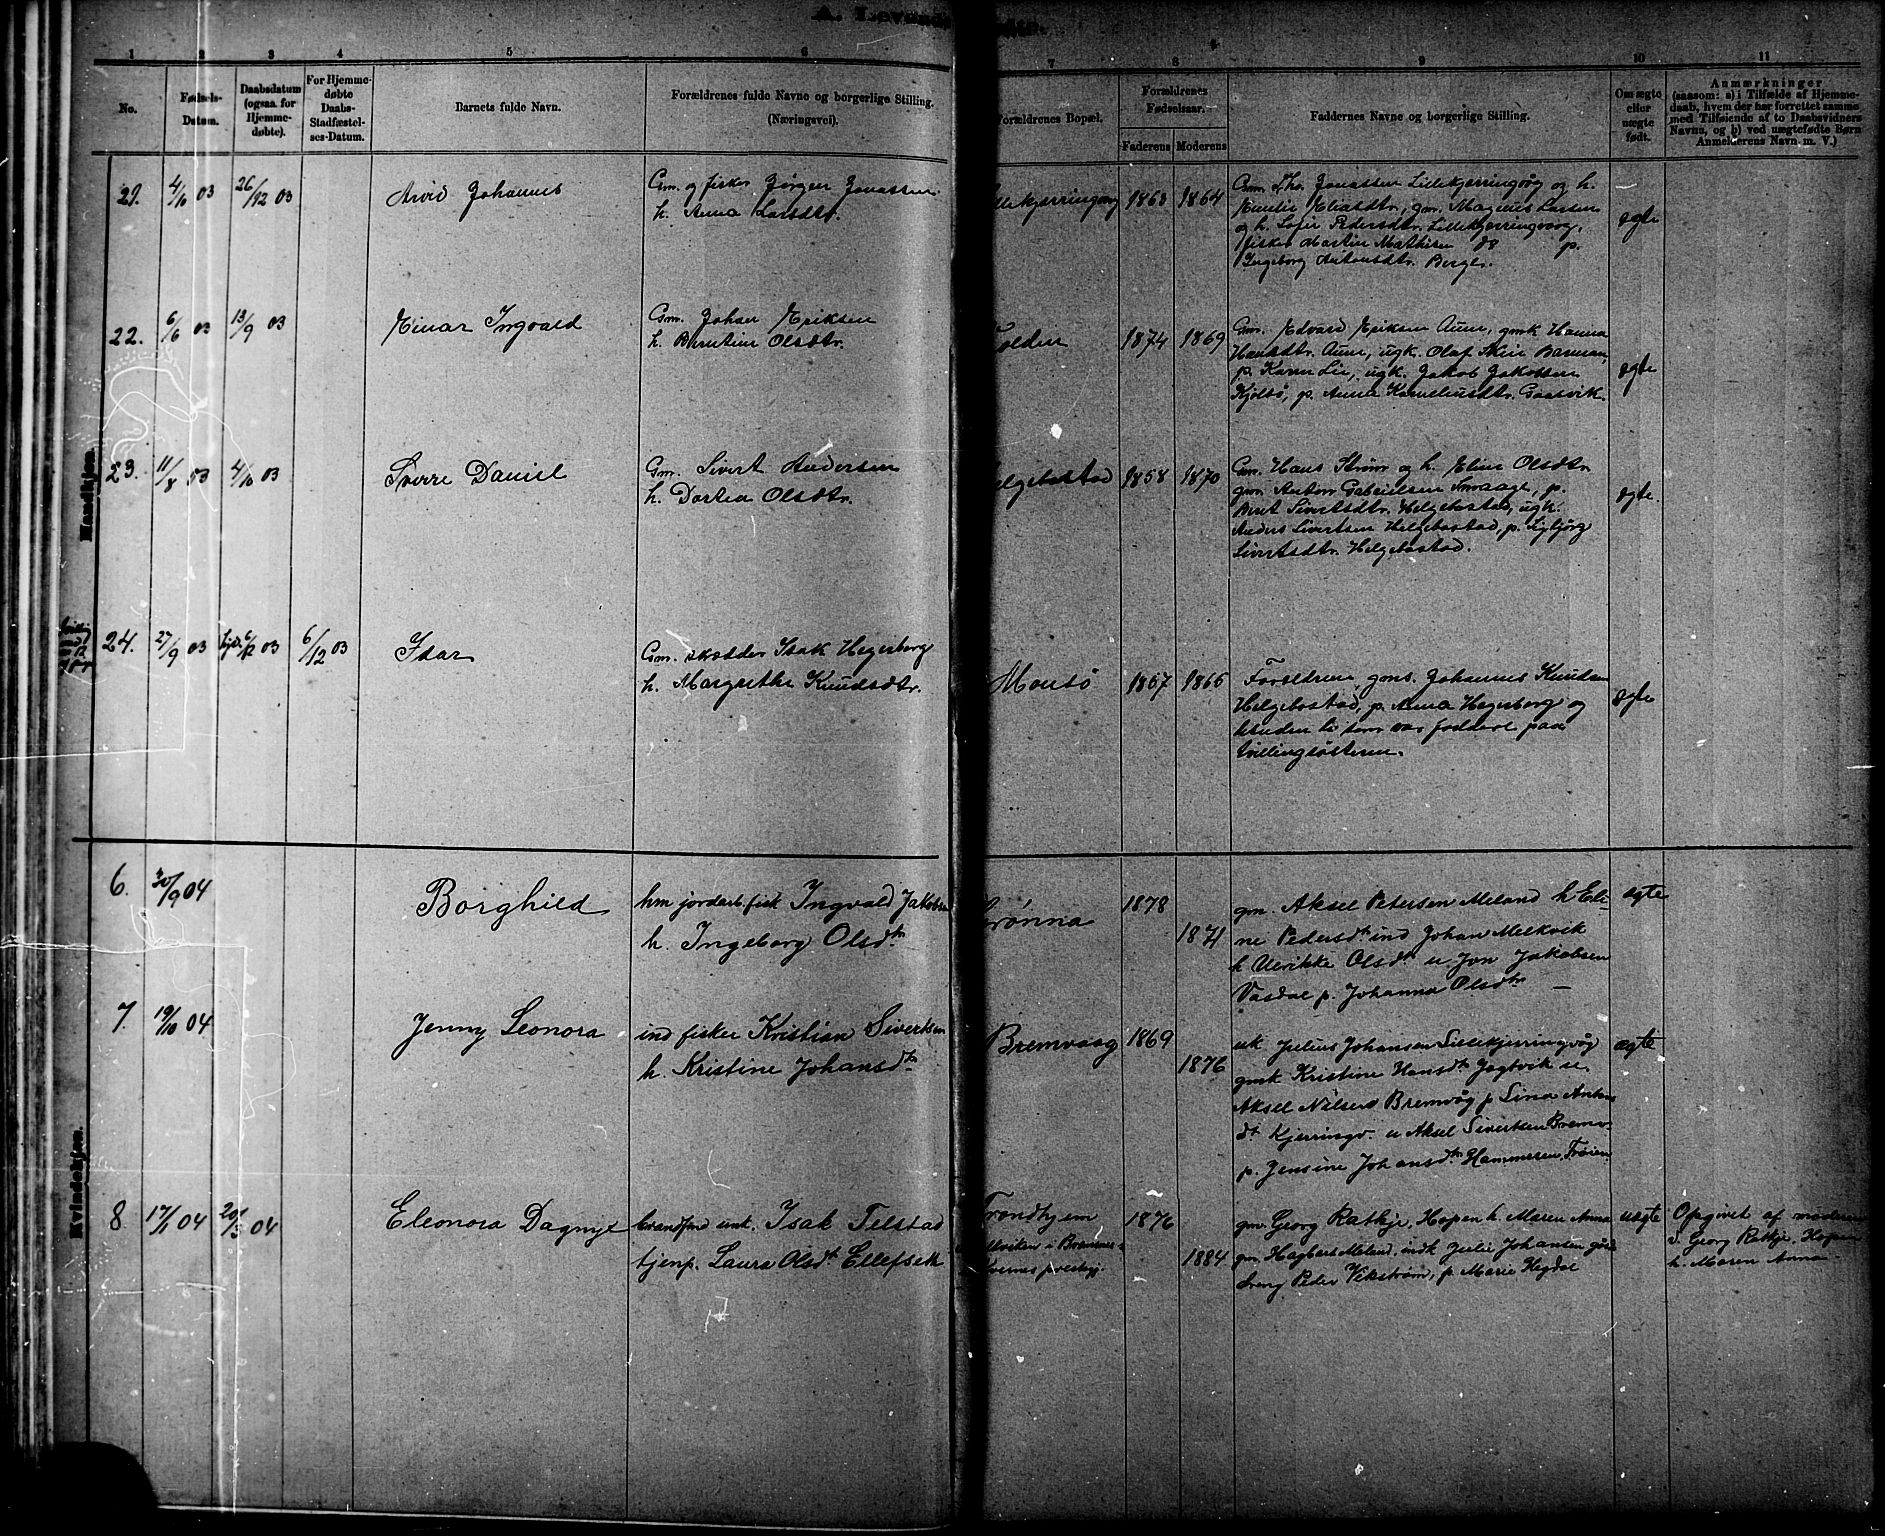 1 2 3 4 5 6 7 8 9 10 11
No.
Fødsels-
Datum.
Daabsdatum
(ogsaa for
Hjemme-
døbte).
For Hjemme-
døbte
Daabs-
Stadfæstel-
ses-Datum.
Barnets fulde Navn.
Forældrenes fulde Navne og borgerlige Stilling.
(Næringsvei).
Forældrenes Bopæl.
Forældrenes
Fødselsaar.
Faderens Moderens
Faddernes Navne og borgerlige Stilling.
Om ægte
eller
uægte
født.
Anmærkninger
(saasom: a) i Tilfælde af Hjemme-
daab, hvem der har forrettet samme
med Tilføiende af to Daabsvidners
Navne, og b) ved uægtefødte Børn
Anmelderens Navn m. V.)
Mandkjøn.
21. 4/10 03 26/12 03
Arvid Johannes
Gm. og fisker Jørgen Jonassen
h. Anna Larsdtr.
1863 1864
Gm. Jonassen Lillekjerringvåg og h.
Emelie Eliasdtr., gm. Magnus Larsen
og h. Sofie Pedersdtr. Lillekjerringvaag,
fisker Martin Mathisen p.
Ingeborg Antonsdtr. Berge.
ægte
22. 6/6 03 13/9 03
Einar Ingvald
Gm. Johan Eriksen
h. Berntine Olsdtr.
1874 1869
Gm. Edvard Eriksen Aune, gmk Hanna
Hansdtr. Aune, ugk. Olaf
p. Karen Lie, ugk. Jakob Jakobsen
Kjølsø, p. Anna Korneliusdtr. Gaasvik.
ægte
23. 11/8 03 4/10 03
Sverre Daniel
Gm. Sivert Andersen
h. Dortea Olsdtr.
Helgebostad
1858 1870
Gm. Hans Strøm og h. Eline Olsdtr
gm. Anton Gabrielsen Smaage, p.
Berit Sivertsdtr. Helgebostad, ugk.
Anders Sivertsen Helgebostad, p. Sigbjørg
Sivertsdtr. Helgebostad.
ægte.
24. 27/9 03 hjd. 6/12 03 6/12 03
Ivar
Gm. skredder Isak Hegerberg
h. Margrethe Knudsdtr.
Mausø
1867 1866
Forældrene gms. Johannes Knudsen
Helgebostad, p. Anna Hegerberg og
desuden de som var faddere paa
tvillingsøsteren.
ægte
Kvindekjøn.
6. 30/9 04
Borghild
hm jordarb. fisk Ingvald Jakobsen
h. Ingeborg Olsdtr
1878
1871
gm. Aksel Petersen Meland h Eli-
ne Pedersdtr ind Johan Melkvik
h Ulrikke Olsdtr u Jon Jakobsen
Vasdal p. Johanna Olsdtr —
ægte
7. 19/10 04
Jenny Leonora
ind fisker Kristian Sivertsen
h. Kristine Johansdtr
Bremvaag
1869
1876
uk Julius Johansen Lillekjerringvåg
gmk Kristine Hansdtr Jægtvik u.
Aksel Nilsen Bremvåg p Lina Antons
dtr Kjerringv. u Aksel Sivertsen Bremv.
p. Jensine Johansdtr Hammeren, Frøien
ægte
8 17/1 04 20/3 04
Eleonora Dagny
unk. Isak Telstad
tjenp. Laura Olsdtr Ellefseth
Trondhjem
Kvernes præstgj.
1876
1884
gm. Georg Ratkje, Hopen h. Maren Anna
gm. Hagbart Meland, indk Julie Johansen
dreng Peder Vikstrøm, p. Marie Hegdal
uægte
Opgivet af moderen
Georg Ratkje, Hopen
h. Maren Anna